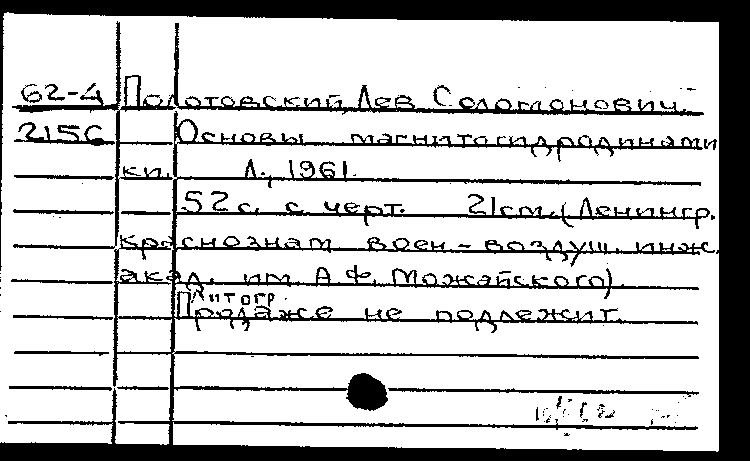 62-4 Полотовский, Лев Соломонович.
2156 Основы магнитогидродинами
ки. Л., 1961.
52 с. с черт. 21 см. (Ленингр.
краснознам воен-воздуш. инж.
акад. им. А.Ф. Можайского).
Литогр.
Продаже не подлежит.